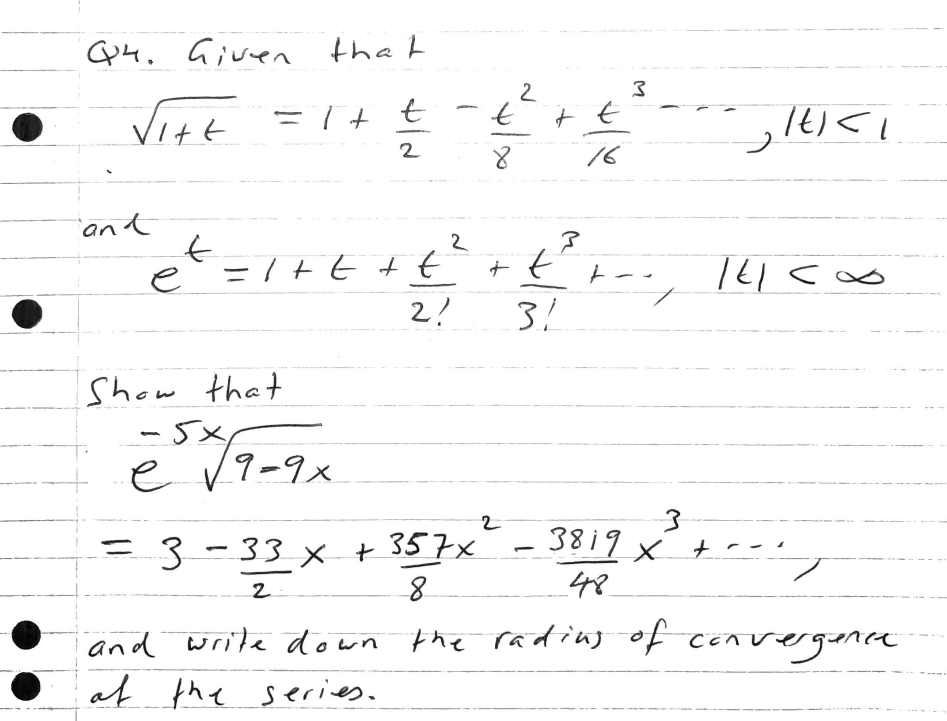 Q4. Given that
√(1+t) = 1 + t/2 - t²/8 + t³/16 - ---, |t| < 1
and
e^t = 1 + t + t²/2! + t³/3! + --, |t| < ∞
Show that
e^(-5x) √(9-9x)
= 3 - 33/2 x + 357x²/8 - 3819/48 x³ + ---,
and write down the radius of convergence
of the series.